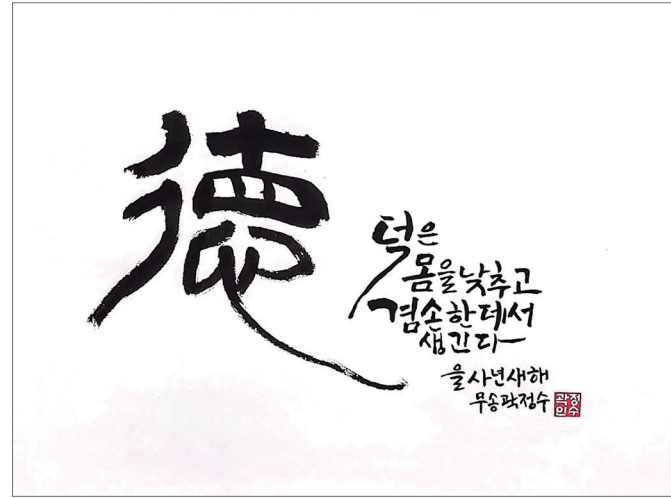 德
덕은
몸을낮추고
겸손한데서
생긴다
을사년새해
무송곽정수
곽정
인수